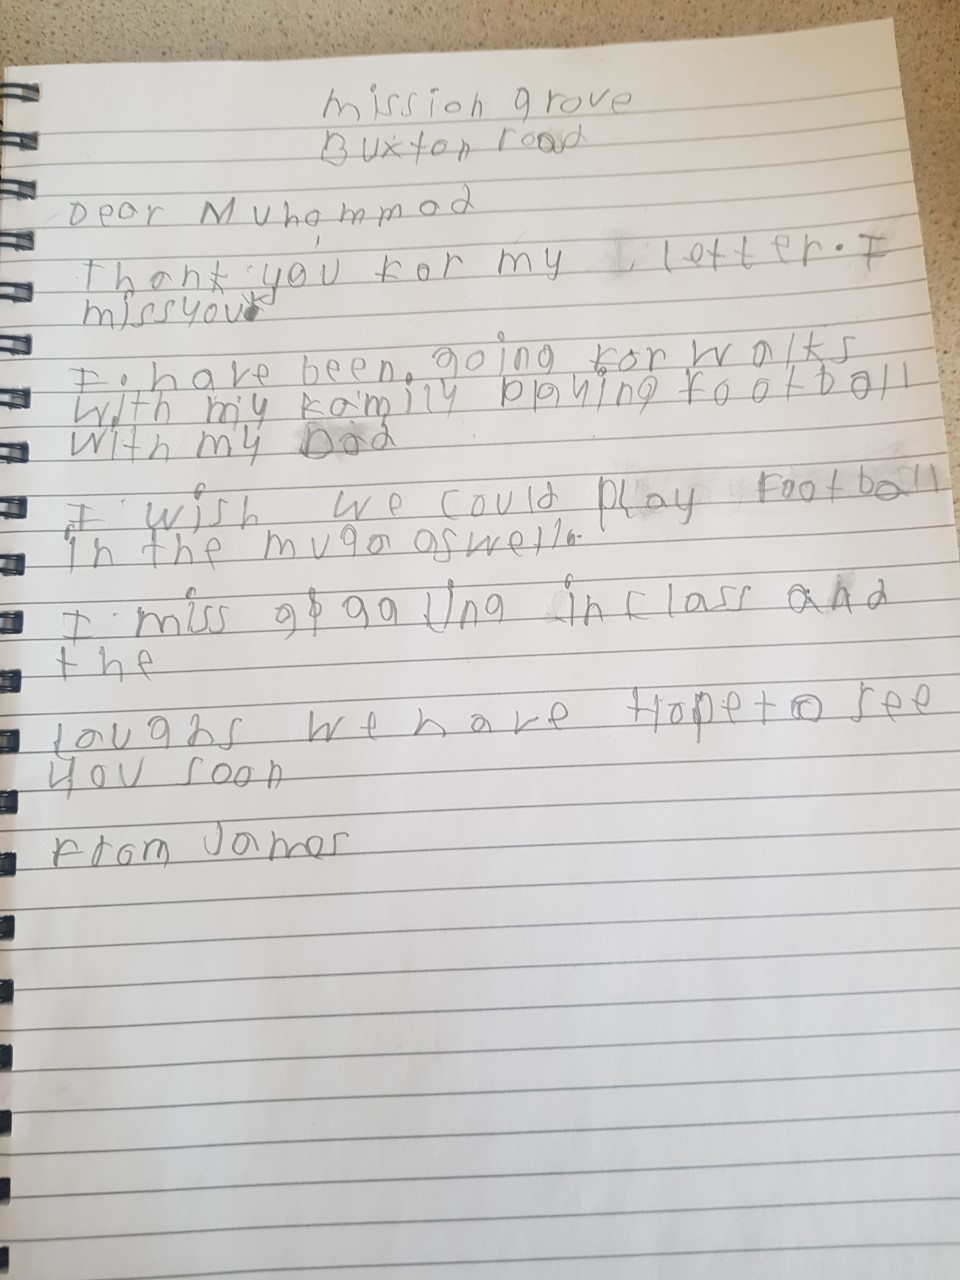 mission grove
Buxton road
Dear Muhammad
thank you for my letter. I
miss you
I have been going for walks
with my family playing football
with my Dad
I wish we could play Football
in the muga aswell.
I miss in class and
the
laughs we have Hope to see
you soon
From James